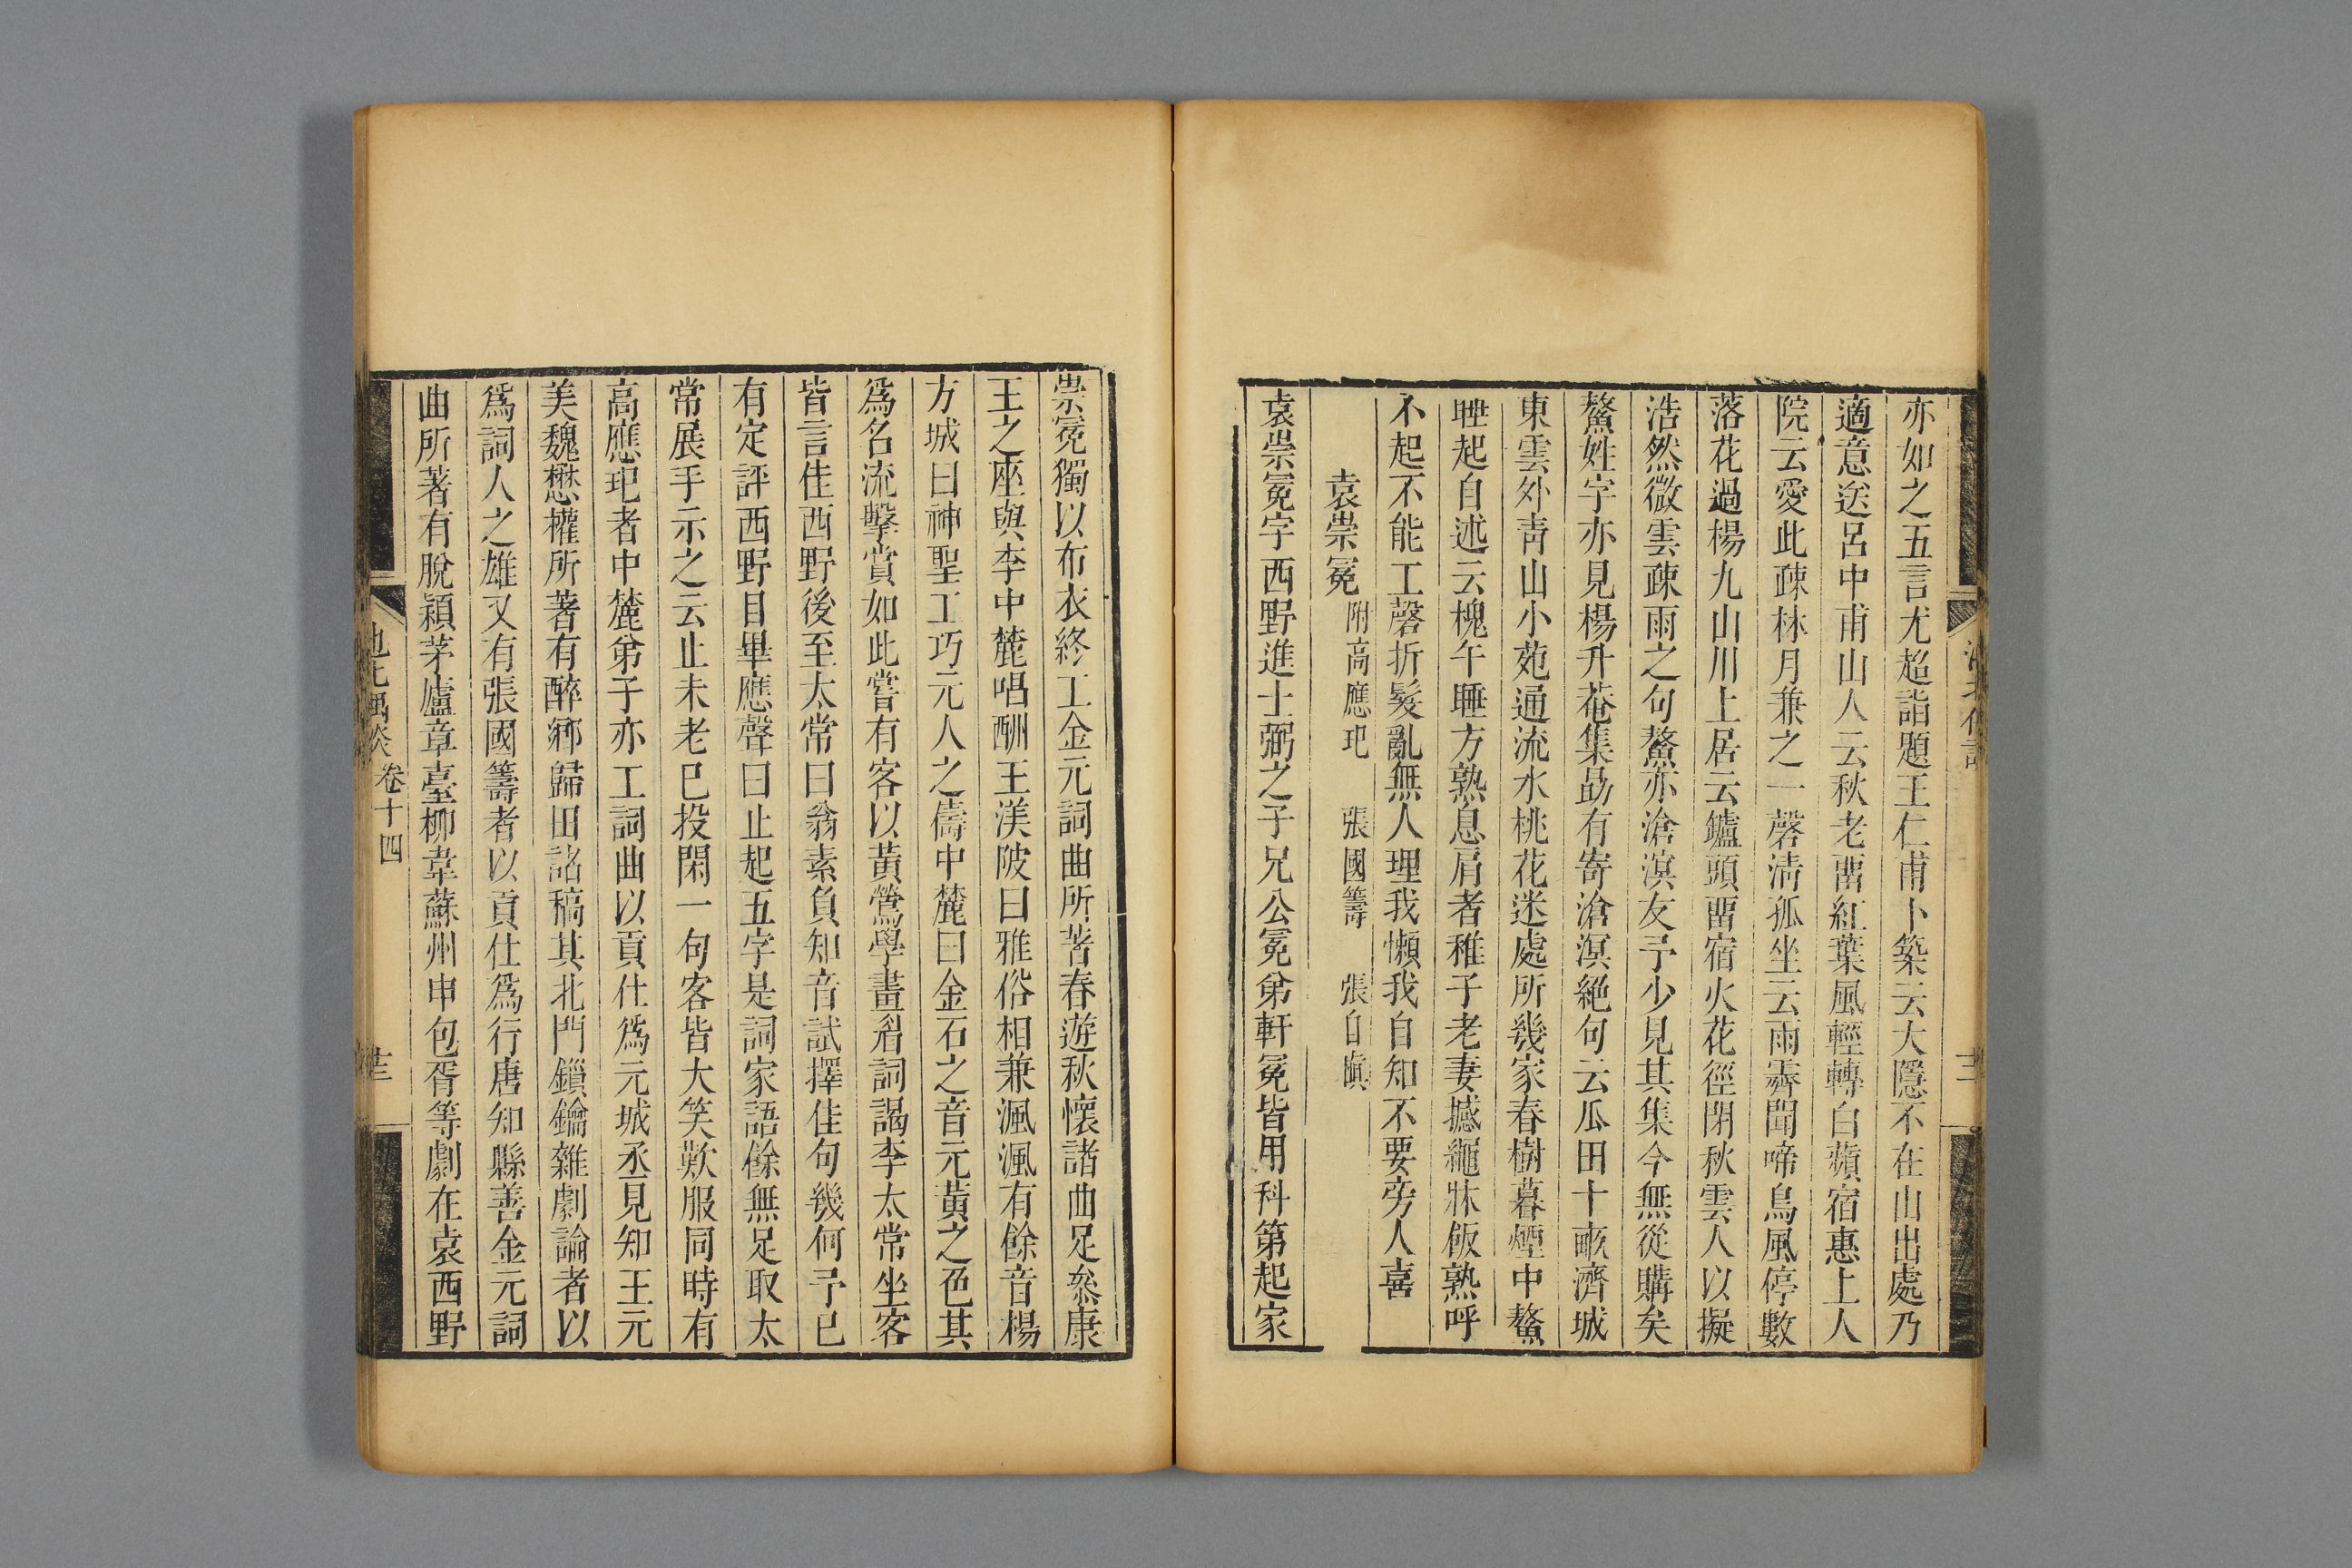 亦如之五言尤超詣題王仁甫卜築云大隱不在山出處乃
適意送呂中甫山人云秋老畱紅葉風輕轉白蘋宿惠上人
院云愛此疎林月兼之一磬淸孤坐云雨霽聞啼鳥風停數
落花過楊九山川上居云鑪頭畱宿火花徑閉秋雲人以擬
浩然微雲疎雨之句鰲亦滄溟友予少見其集今無從購矣
鰲姓字亦見楊升菴集勗有寄滄溟絕句云瓜田十畝濟城
東雲外靑山小苑通流水桃花迷處所幾家春樹暮煙中鰲
睡起自述云槐午睡方熟息肩者稚子老妻撼繩牀飯熟呼
不起不能工磬折髮亂無人理我懶我自知不要旁人喜
袁崇冕附高應玘 張國籌 張自愼
袁崇冕字西野進士弼之子兄公冕弟軒冕皆用科第起家
崇冕獨以布衣終工金元詞曲所著春遊秋懷諸曲足叅康
王之座與李中麓唱酬王渼陂曰雅俗相兼渢渢有餘音楊
方城曰神聖工巧元人之儔中麓曰金石之音元黃之色其
爲名流擊賞如此嘗有客以黃鶯學畫眉詞謁李太常坐客
皆言佳西野後至太常曰翁素負知音試擇佳句幾何予已
有定評西野目畢應聲曰止起五字是詞家語餘無足取太
常展手示之云止未老已投閑一句客皆大笑歎服同時有
高應玘者中麓弟子亦工詞曲以貢仕爲元城丞見知王元
美魏懋權所著有醉鄉歸田諸稿其北門鎖鑰雜劇論者以
爲詞人之雄又有張國籌者以貢仕爲行唐知縣善金元詞
曲所著有脫穎茅廬章臺柳韋蘇州申包胥等劇在袁西野
池北偶談 卷十四